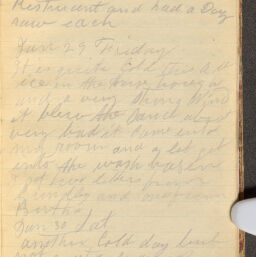 and had a Dog
saw each
Jan 29 Friday
It is quite Cold this A M
ice in the
and a very Strong Wind
it blew the Sand about
very bad it came into
my room and a lot got
into the wash basin
I got two letters from
and one from
Bertha
Jan 30 Sat
another Cold day but